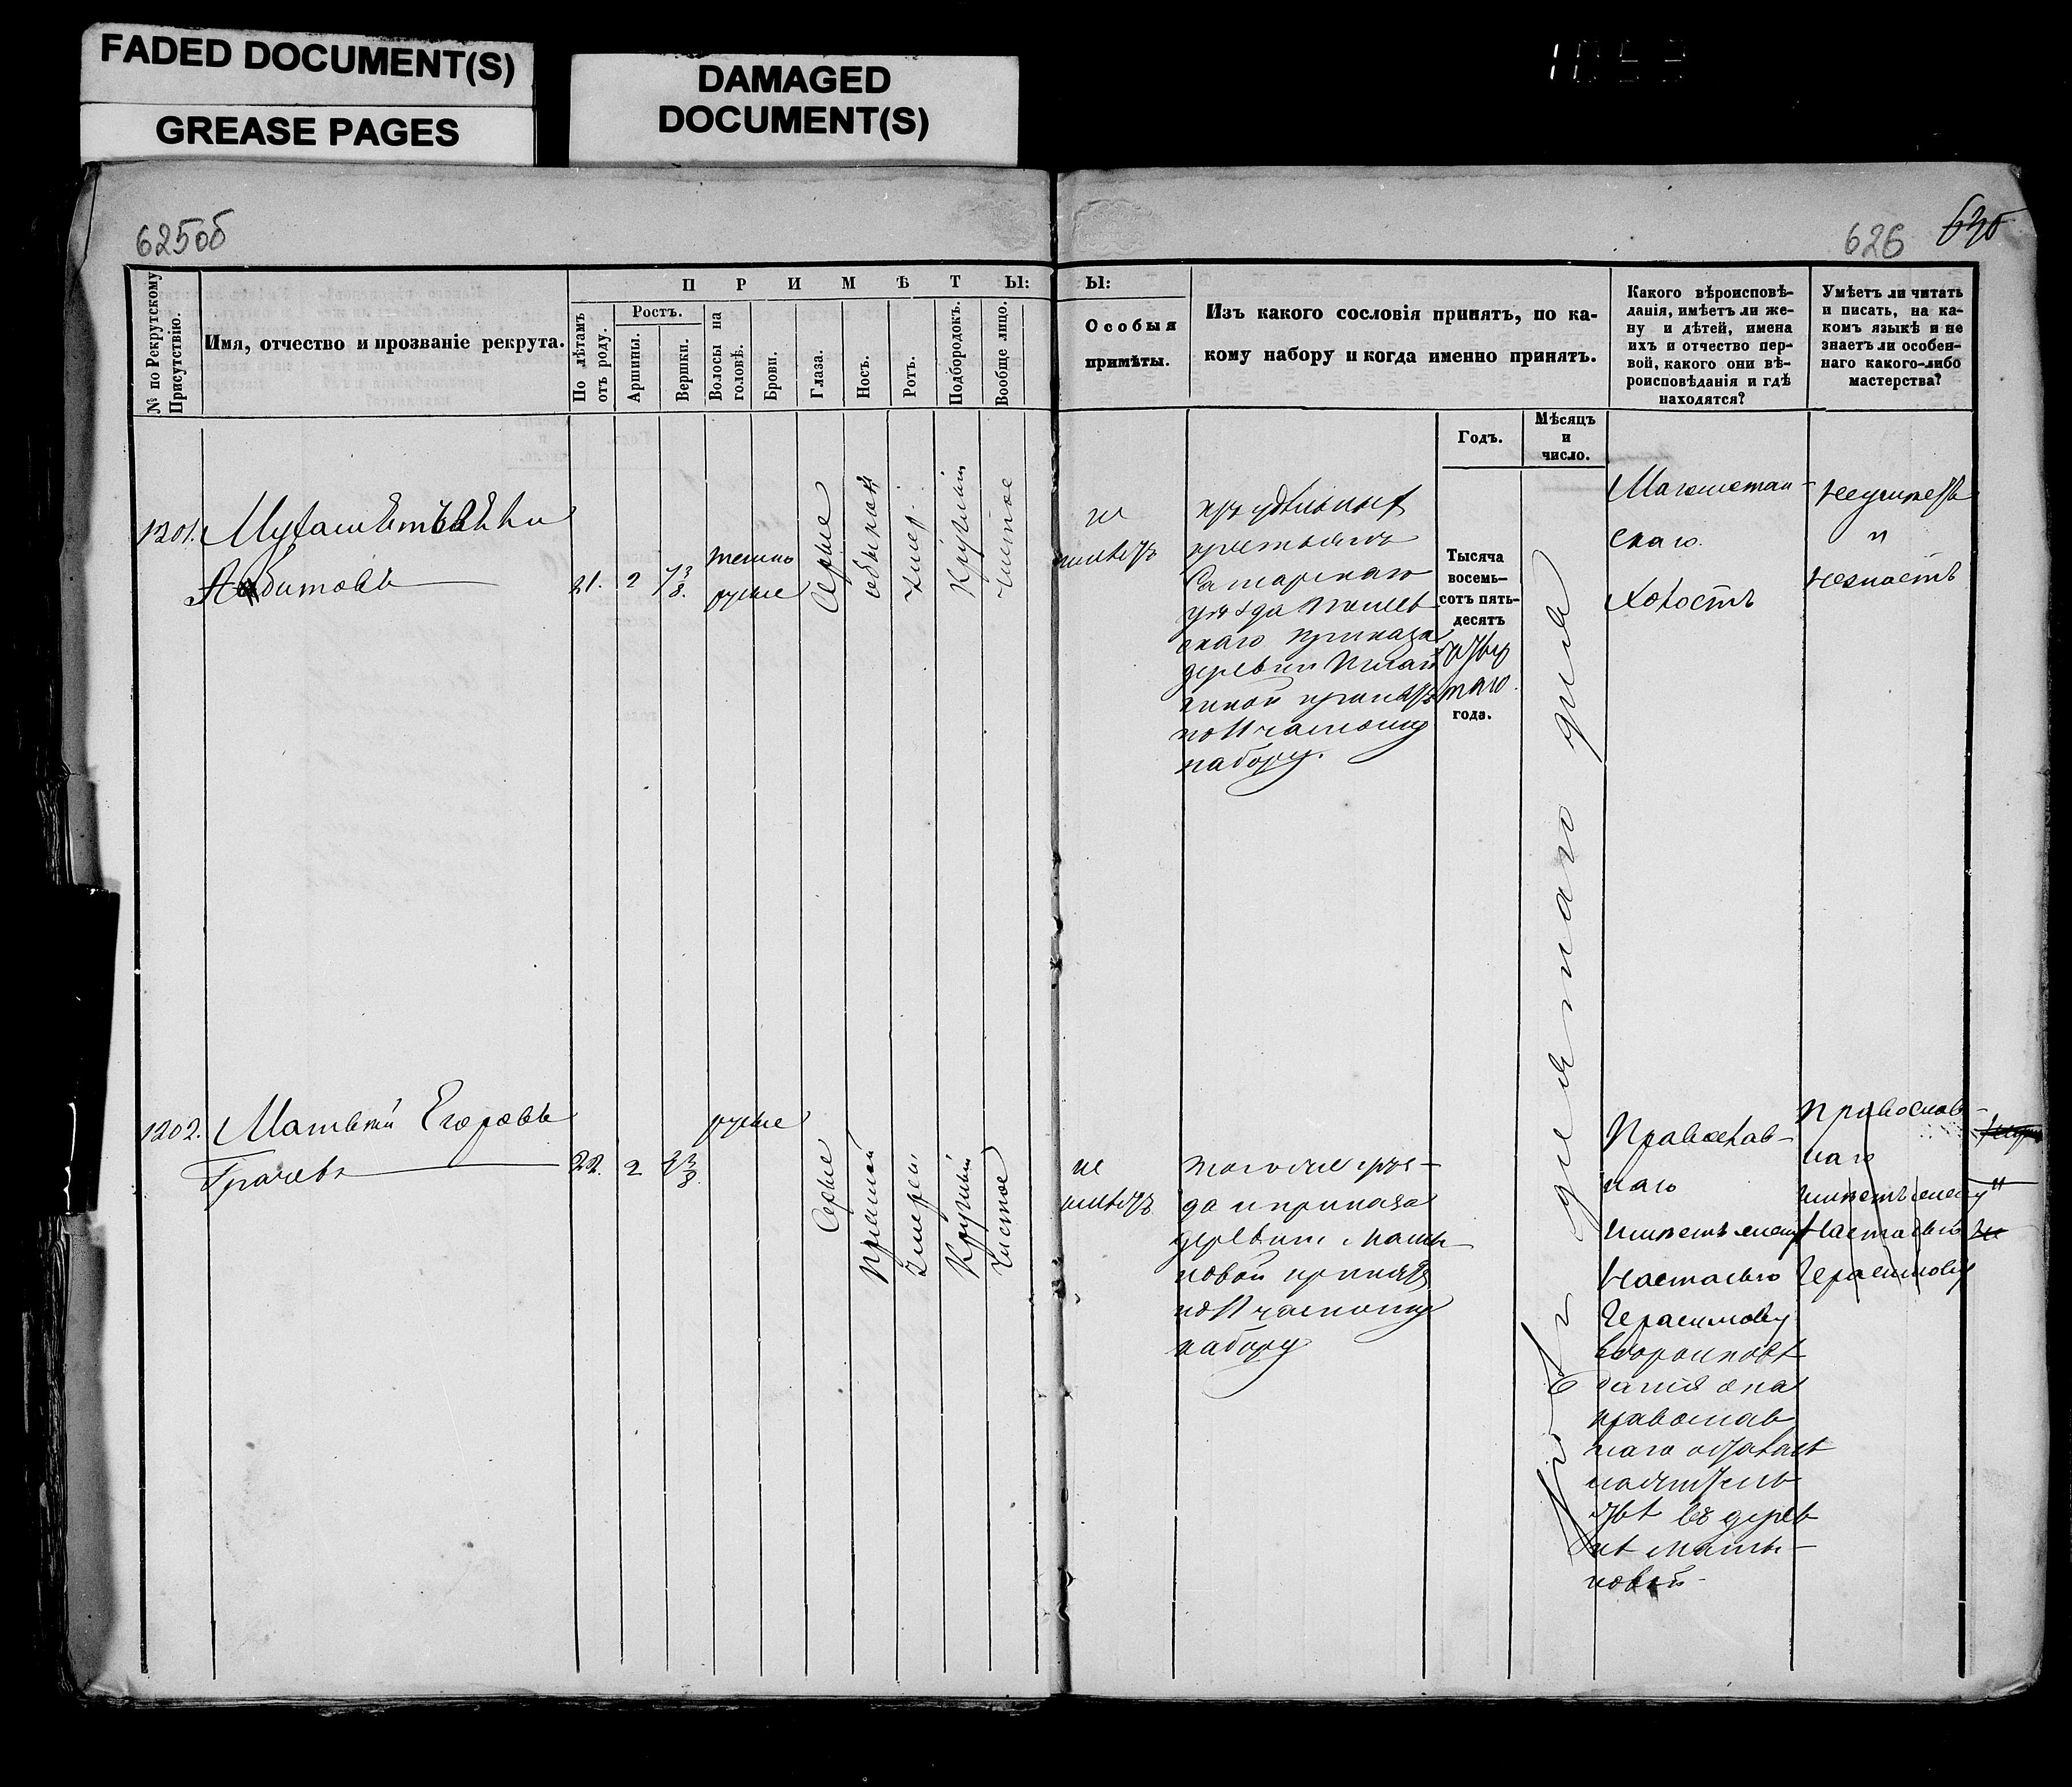 FADED DOCUMENT(S)
GREASE PAGES
DAMAGED
DOCUMENT(S)
625об
626
№ по Рекрутскому
Присутствію.
Имя, отчество и прозваніе рекрута.
П Р И М Ѣ Т Ы:
По лѣтамъ
отъ роду.
Ростъ.
Аршины.
Вершки.
Волосы на
головѣ.
Брови.
Глаза.
Носъ.
Ротъ.
Подбородокъ.
Вообще лицо.
Ы:
Особыя
примѣты.
Изъ какого сословія принятъ, по ка-
кому набору и когда именно принятъ.
Годъ.
Мѣсяцъ
и
число.
Какого вѣроисповѣ-
данія, имѣетъ ли же-
ну и дѣтей, имена
ихъ и отчество пер-
вой, какого они вѣ-
роисповѣданія и гдѣ
находятся?
Умѣетъ ли читать
и писать, на ка-
комъ языкѣ и не
знаетъ ли особен-
наго какого-либо
мастерства?
1201.
Абитовъ
21.
2
7 3/8.
темно
русые
Серые
обыкнов
умер.
Круглый
чистое
не
имѣетъ
изъ удѣльныхъ
крестьянъ
Самарскаго
уѣзда
скаго приказа
деревни
принятъ
по II частному
набору.
Тысяча
восемь-
сотъ пять-
десятъ
четвер
таго
года.
девятнаго дня
Магометан-
скаго.
Холостъ
Неумѣетъ
"
незнаетъ
1202.
Матвей Егоровъ
Грачевъ
22.
2
3 3/8
русые
Серые
Прямой
Умерен
Круглый
Чистое
не
имѣетъ
того же уез-
да и приказа
деревни Мать
новой принятъ
по II частному
набору
Православ-
наго
имеетъ жену
Настасью
Герасимову
вероисповѣ
дания она
православ
наго
въ дерев
не Мать-
новой
Православ-
наго
имеетъ жену
Настасью
Герасимову